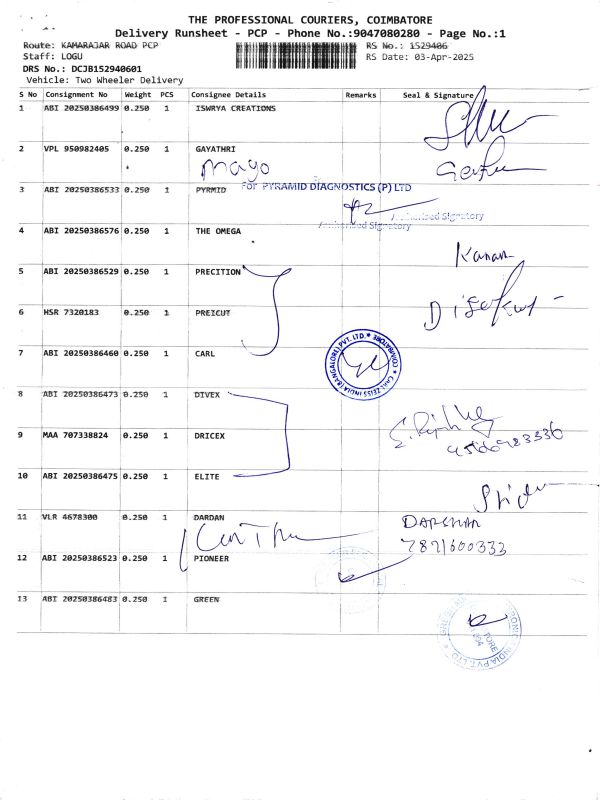 THE PROFESSIONAL COURIERS, COIMBATORE
Delivery Runsheet - PCP - Phone No.:9047080280 - Page No.:1
Route: KAMARAJAR ROAD PCP RS No.: 1529406
Staff: LOGU RS Date: 03-Apr-2025
DRS No.: DCJB152940601
Vehicle: Two Wheeler Delivery
S No Consignment No Weight PCS Consignee Details Remarks Seal & Signature
1 ABI 20250386499 0.250 1 ISWRYA CREATIONS
2 VPL 950982405 0.250 1 GAYATHRI
mago
3 ABI 20250386533 0.250 1 PYRMID
For PYRAMID DIAGNOSTICS (P) LTD
Authorised Signatory
Authorised Signatory
4 ABI 20250386576 0.250 1 THE OMEGA
Kanan
5 ABI 20250386529 0.250 1 PRECITION
6 HSR 7320183 0.250 1 PREICUT
7 ABI 20250386460 0.250 1 CARL
CARL ZEISS INDIA (BANGALORE) PVT. LTD. * COIMBATORE *
8 ABI 20250386473 0.250 1 DIVEX
9 MAA 707338824 0.250 1 DRICEX
10 ABI 20250386475 0.250 1 ELITE
11 VLR 4678300 0.250 1 DARDAN
DARSHAN
7871600333
12 ABI 20250386523 0.250 1 PIONEER
13 ABI 20250386483 0.250 1 GREEN
INDIA PVT. LTD.